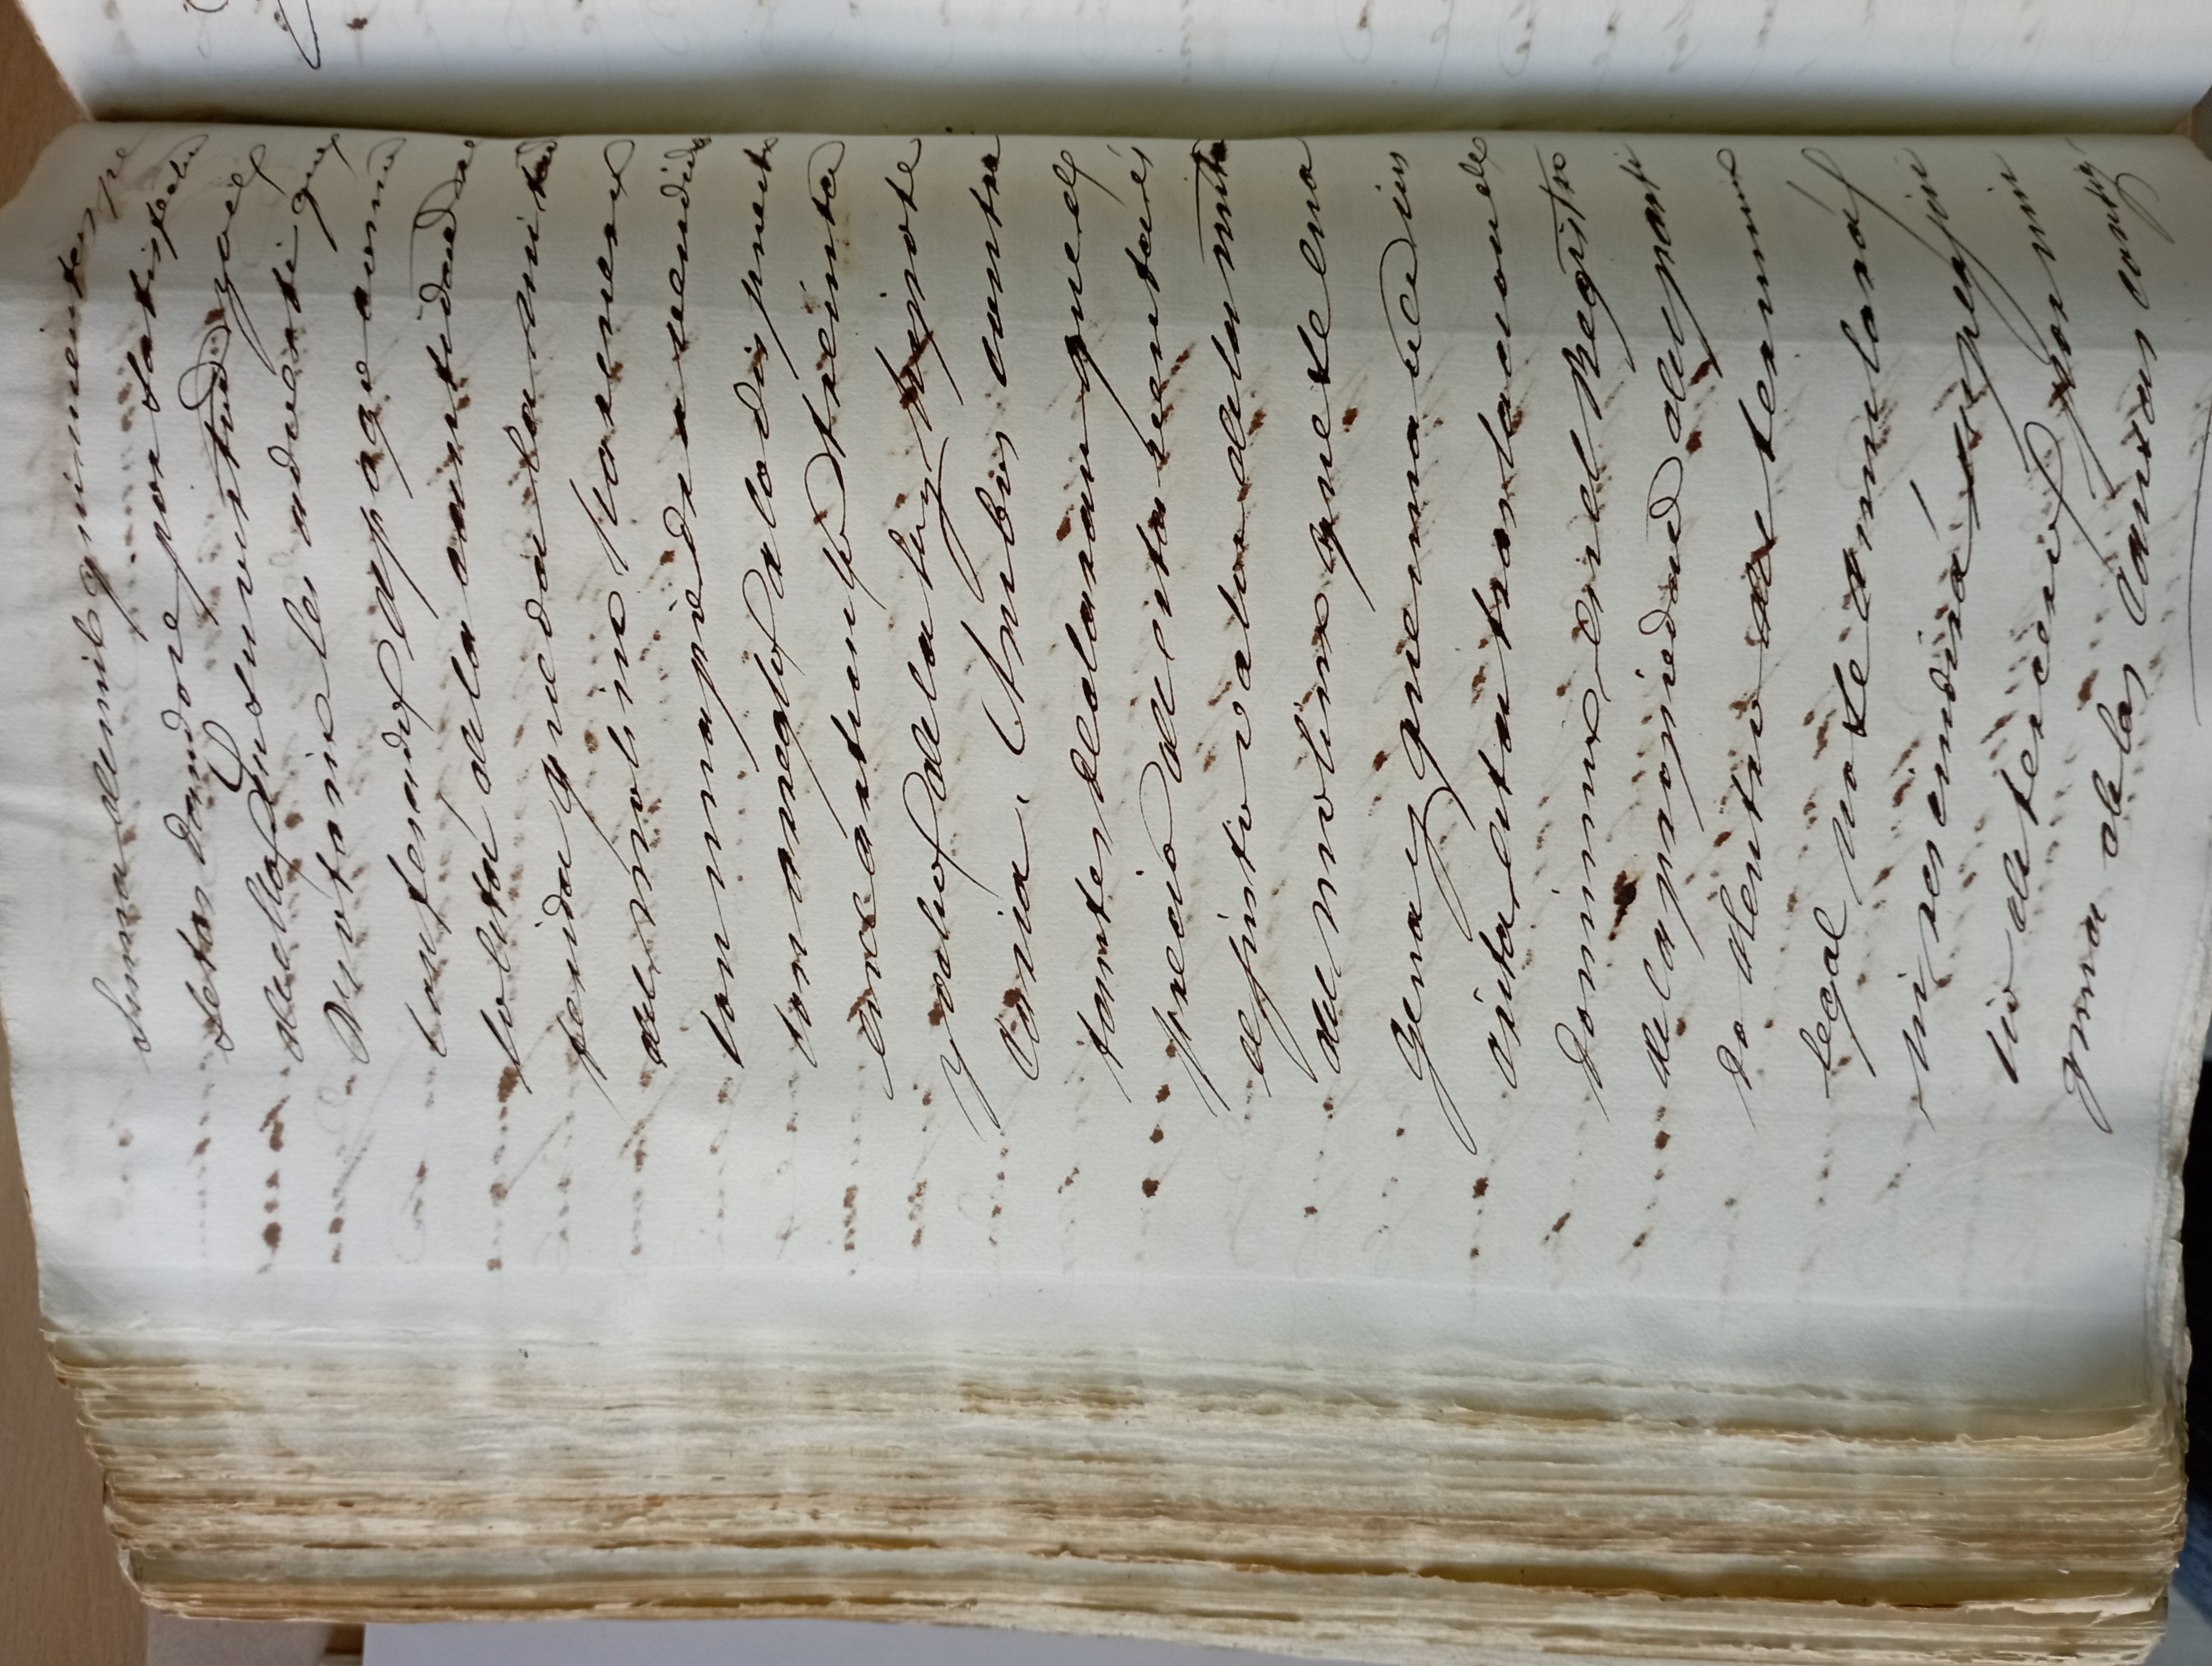 suma de mil quinientas pe
setas dandose por satisfecho
de ella. En su virtud yo el
Notario les adverti que
confesado el pago como
lo está de la cantidad re
ferida queda la mitad
del molino harinero
con una piedra vendida
con arreglo a lo dispuesto
en el articulo treinta
y ocho de la ley hipote
caria. Ambos contra
tantes declaran que el
precio de esta venta es
el justo valor de la mitad
del molino que se ena
gena y que una vez ins
crita esta traslacion de
dominio en el Registro
de la propiedad del parti
do dentro del termino
legal no se anulará
ni rescindirá en perjui
cio de tercero por nin
guna de las causas